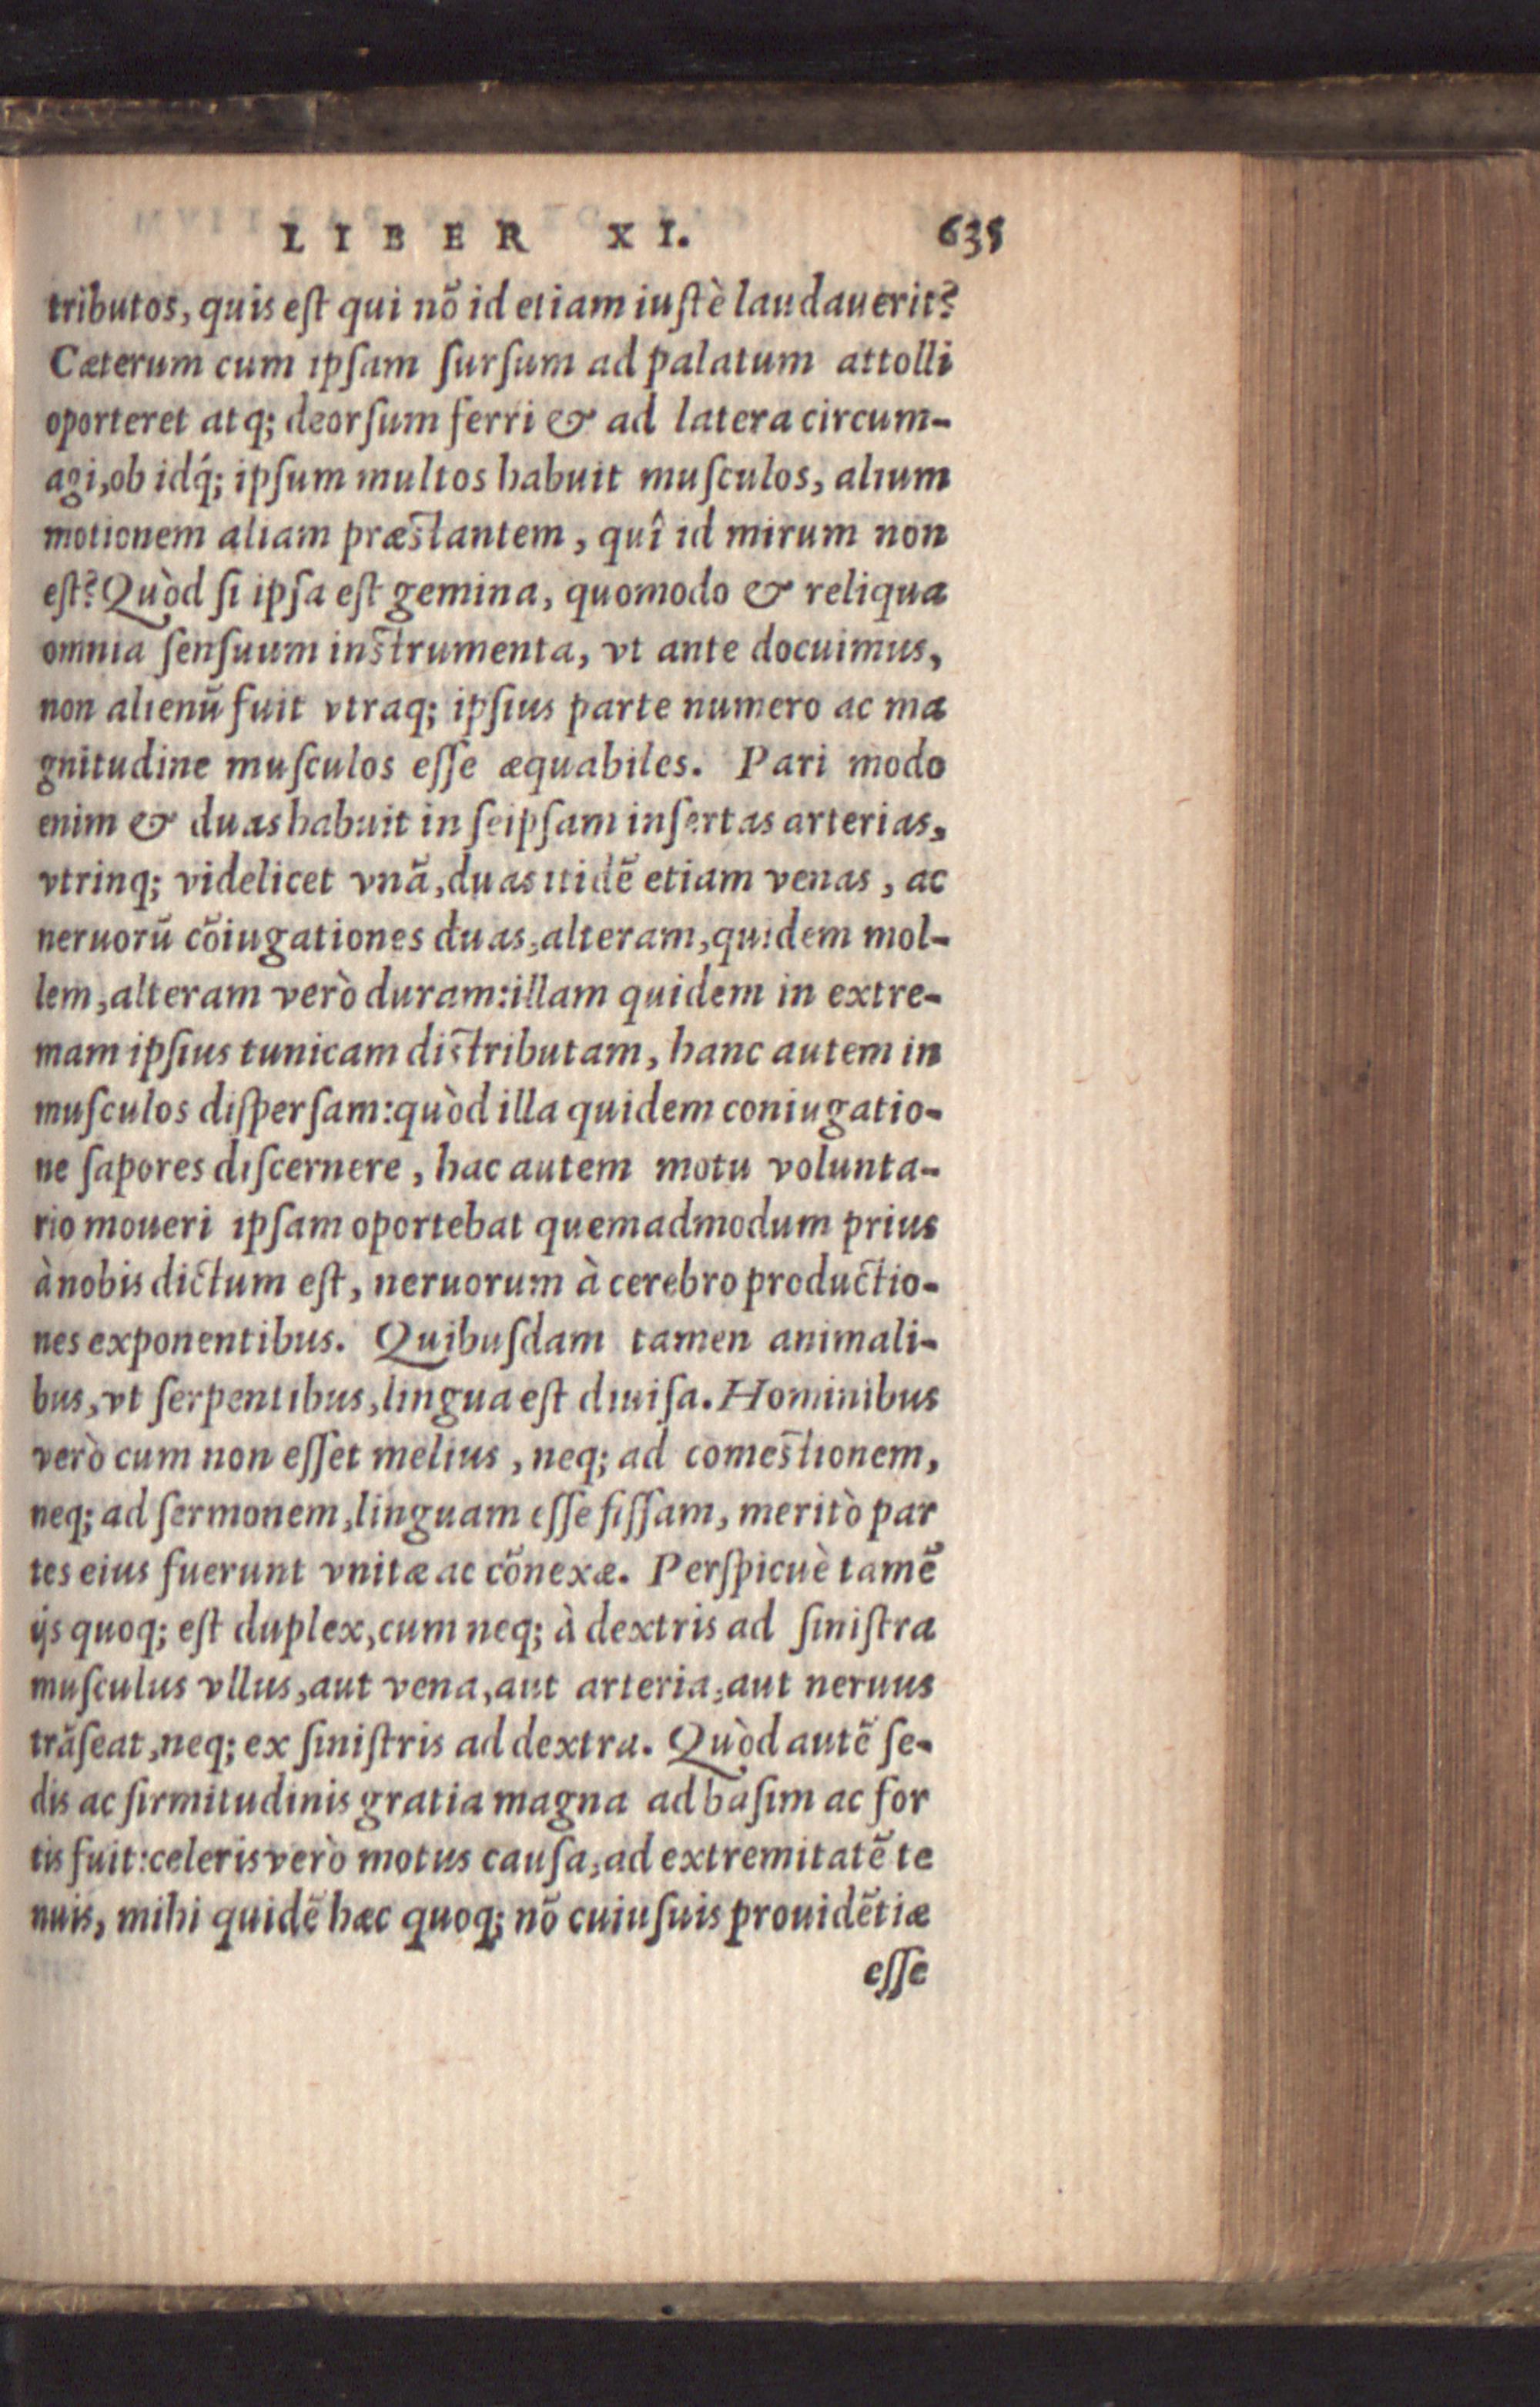 LIBER XI. 635
tributos, quis eſt qui nõ id etiam iuſtè laudauerit?
Cæterum cum ipſam ſurſum ad palatum attolli
oporteret atq; deorſum ferri & ad latera circum-
agi, ob idq́; ipſum multos habuit muſculos, alium
motionem aliam præſtantem, quî id mirum non
eſt? Quòd ſi ipſa eſt gemina, quomodo & reliqua
omnia ſenſuum inſtrumenta, vt ante docuimus,
non alienũ fuit vtraq; ipſius parte numero ac ma
gnitudine muſculos eſſe æquabiles. Pari modo
enim & duas habuit in ſeipſam inſertas arterias,
vtrinq; videlicet vnã, duas itidẽ etiam venas, ac
neruorũ cõiugationes duas, alteram, quidem mol-
lem, alteram verò duram: illam quidem in extre-
mam ipſius tunicam diſtributam, hanc autem in
muſculos diſperſam: quòd illa quidem coniugatio-
ne ſapores diſcernere, hac autem motu volunta-
rio moueri ipſam oportebat quemadmodum prius
à nobis dictum eſt, neruorum à cerebro productio-
nes exponentibus. Quibuſdam tamen animali-
bus, vt ſerpentibus, lingua eſt diuiſa. Hominibus
verò cum non eſſet melius, neq; ad comeſtionem,
neq; ad ſermonem, linguam eſſe fiſſam, meritò par
tes eius fuerunt vnitæ ac cõnexæ. Perſpicuè tamẽ
ijs quoq; eſt duplex, cum neq; à dextris ad ſiniſtra
muſculus vllus, aut vena, aut arteria, aut neruus
trãſeat, neq; ex ſiniſtris ad dextra. Quòd autẽ ſe-
dis ac firmitudinis gratia magna ad baſim ac for
tis fuit: celeris verò motus cauſa, ad extremitatẽ te
nuis, mihi quidẽ hæc quoq; nõ cuiuſuis prouidẽtiæ
eſſe